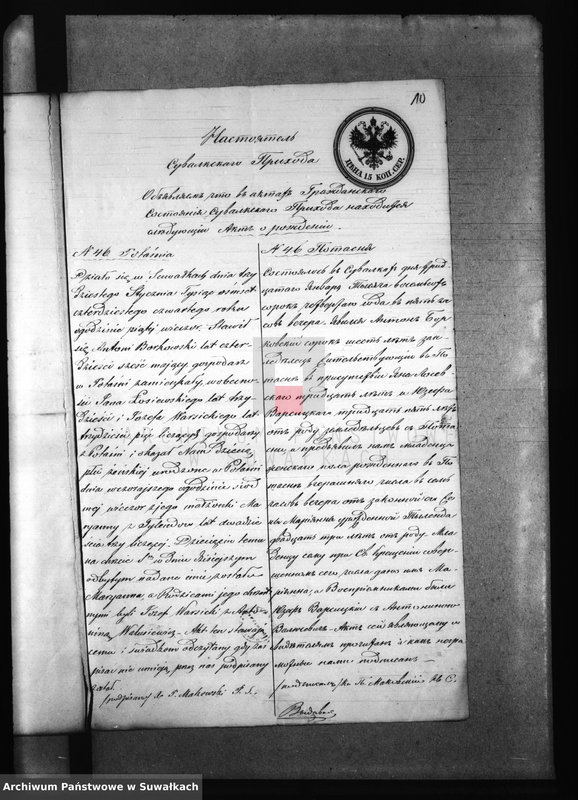 10
Настоятель
Сувалкскаго Прихода
ЦѢНА 15 КОП. СЕР.
Объявляемъ что въ актахъ Гражданскаго
Состоянія Сувалкскаго Прихода находится
слѣдующій Актъ о рожденіи.
N 46 Potasnia
Działo się w Suwałkach dnia trzy
dziestego Stycznia Tysiąc ośmset
czterdziestego czwartego roku
o godzinie piątej wieczor. Stawił
się Antoni Borkowski lat czter
dzieści sześć mający gospodarz
w Potasni zamieszkały, w obecno
ści Jana Łosiewskiego lat trzy
dzieści i Józefa Warsickiego lat
trzydzieści pięć liczących gospodarzy
z Potasni i okazał Nam dziecię
płci żeńskiej urodzone w Potasni
dnia wczorajszego o godzinie siód
mej wieczor z jego małżonki Ma
ryanny z lat dwadzie
ścia trzy liczącej. Dziecięciu temu
na chrzcie Stm w dniu dzisiejszym
odbytym nadane imie zostało
Maryanna, a Rodzicami jego chrzest
nymi byli Józef Warsicki z Anto
niną Walusiewicz. Akt ten stawają
cemu i świadkom odczytany gdy zaś
pisać nie umieją, przez nas podpisany
został.
/podpisany/ X. P. Makowski P. S.
N 46 Потасня
Состоялось въ Сувалкахъ дня трид
цатаго Января Тысяча восемьсотъ
сорокъ четвертаго года въ пять ча
совъ вечера. Явился Антонъ Бур
ковскій сорокъ шесть лѣтъ зем
ледѣлецъ жительствующій въ По
таснѣ въ присутствіи Яна Лосев
скаго тридцать лѣтъ и Юзефа
Варсицкаго тридцать пять лѣтъ
отъ роду земледѣльцевъ съ Потас
ни и предъявилъ намъ младенца
женскаго пола рожденнаго въ По
таснѣ вчерашняго числа въ семь
часовъ вечера отъ законной его Же
ны Маріанны урожденной
двадцать три лѣтъ отъ роду. Мла
денцу сему при Св. крещеніи совер
шенномъ сего числа дано имя Ма
ріанна, а Воспріемниками были
Юзефъ Варсицкій съ Антониною
Валюсевичъ. Актъ сей явившемуся и
свидѣтелямъ прочитанъ а какъ негра
мотные нами подписанъ.
/подписалъ/ Кс. П. Маковскій Н. С.